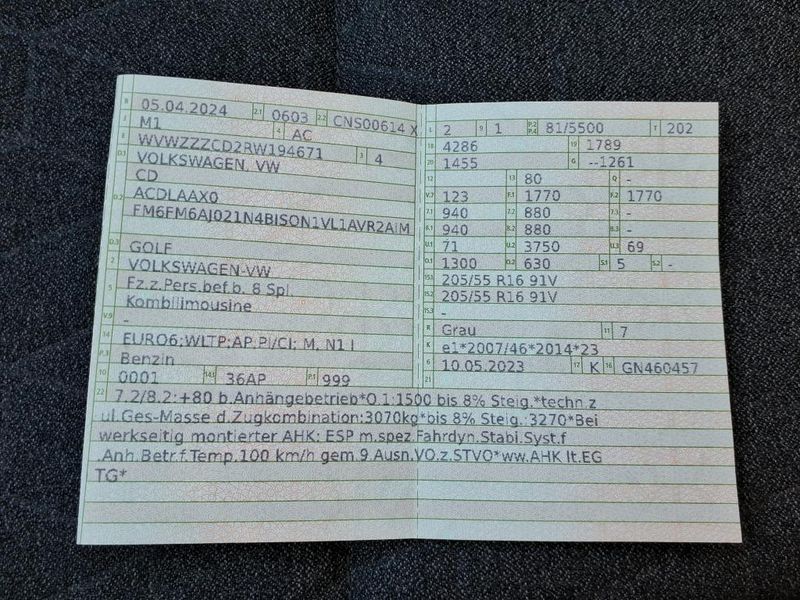 B 05.04.2024 2.1 0603 2.2 CNS00614 X
J M1 4 AC
E WVWZZZCD2RW194671 3 4
D.1 VOLKSWAGEN, VW
CD
D.2 ACDLAAX0
FM6FM6AJ021N4BISON1VL1AVR2AIM
D.3 GOLF
2 VOLKSWAGEN-VW
5 Fz.z.Pers.bef.b. 8 Spl.
Kombilimousine
V.9 -
14 EURO6;WLTP;AP,PI/CI; M, N1 I
P.3 Benzin
10 0001 14.1 36AP P.1 999
L 2 9 1 P.2 P.4 81/5500 T 202
18 4286 19 1789
20 1455 G --1261
12 13 80 Q -
V.7 123 F.1 1770 F.2 1770
7.1 940 7.2 880 7.3 -
8.1 940 8.2 880 8.3 -
U.1 71 U.2 3750 U.3 69
O.1 1300 O.2 630 S.1 5 S.2 -
15.1 205/55 R16 91V
15.2 205/55 R16 91V
15.3 -
R Grau 11 7
K e1*2007/46*2014*23
6 10.05.2023 17 K 16 GN460457
21
22 7.2/8.2:+80 b.Anhängebetrieb*O.1:1500 bis 8% Steig.*techn.z
ul.Ges-Masse d.Zugkombination:3070kg*bis 8% Steig.:3270*Bei
werkseitig montierter AHK: ESP m.spez.Fahrdyn.Stabi.Syst.f
.Anh.Betr.f.Temp.100 km/h gem.9.Ausn.VO.z.STVO*ww.AHK lt.EG
TG*